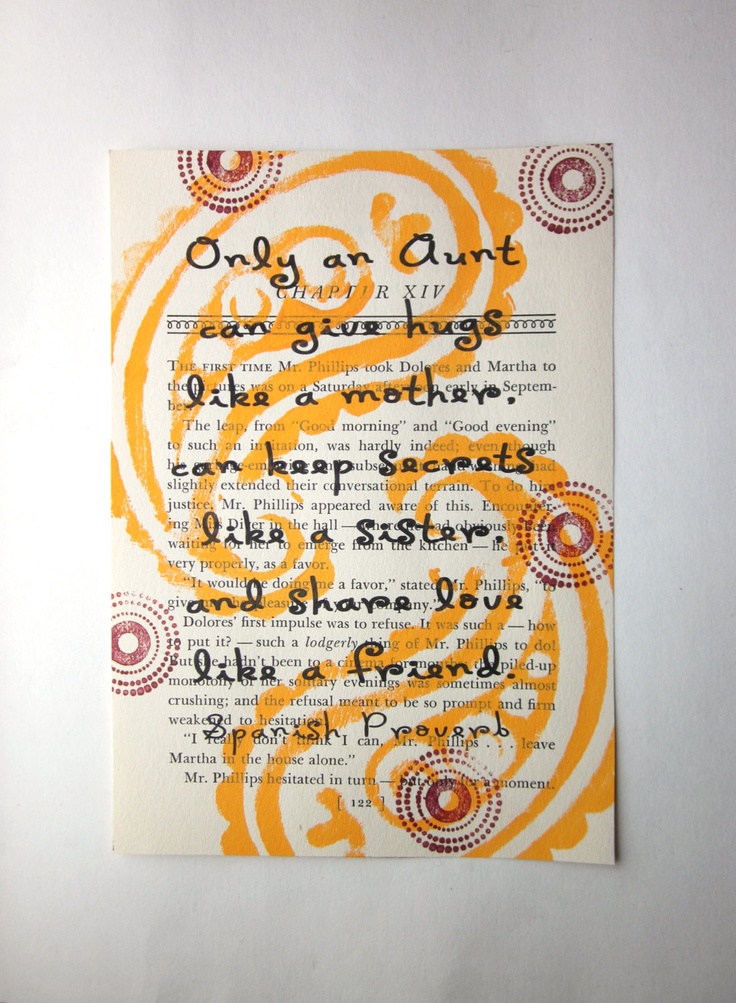 Only an Aunt
CHAPTER XIV
can give hugs
THE FIRST TIME Mr. Phillips took Dolores and Martha to
the pictures was on a Saturday afternoon early in Septem-
like a mother.
The leap, from "Good morning" and "Good evening"
to such an invitation, was hardly indeed; even though
can keep secrets
slightly extended their conversational terrain. To do him
justice, Mr. Phillips appeared aware of this. Encounter-
ing Miss Diver in the hall — where had obviously been
like a sister.
waiting for her to emerge from the kitchen — he put it
very properly, as a favor.
"It would be doing me a favor," stated Mr. Phillips, "to
and share love
Dolores' first impulse was to refuse. It was such a — how
to put it? — such a lodgerly thing of Mr. Phillips to do!
But she hadn't been to a cinema for months; the piled-up
like a friend.
monotony of her solitary evenings was sometimes almost
crushing; and the refusal meant to be so prompt and firm
weakened to hesitation.
Spanish Proverb
"I really don't think I can, Mr. Phillips . . . leave
Martha in the house alone."
Mr. Phillips hesitated in turn — but only for a moment.
[ 122 ]